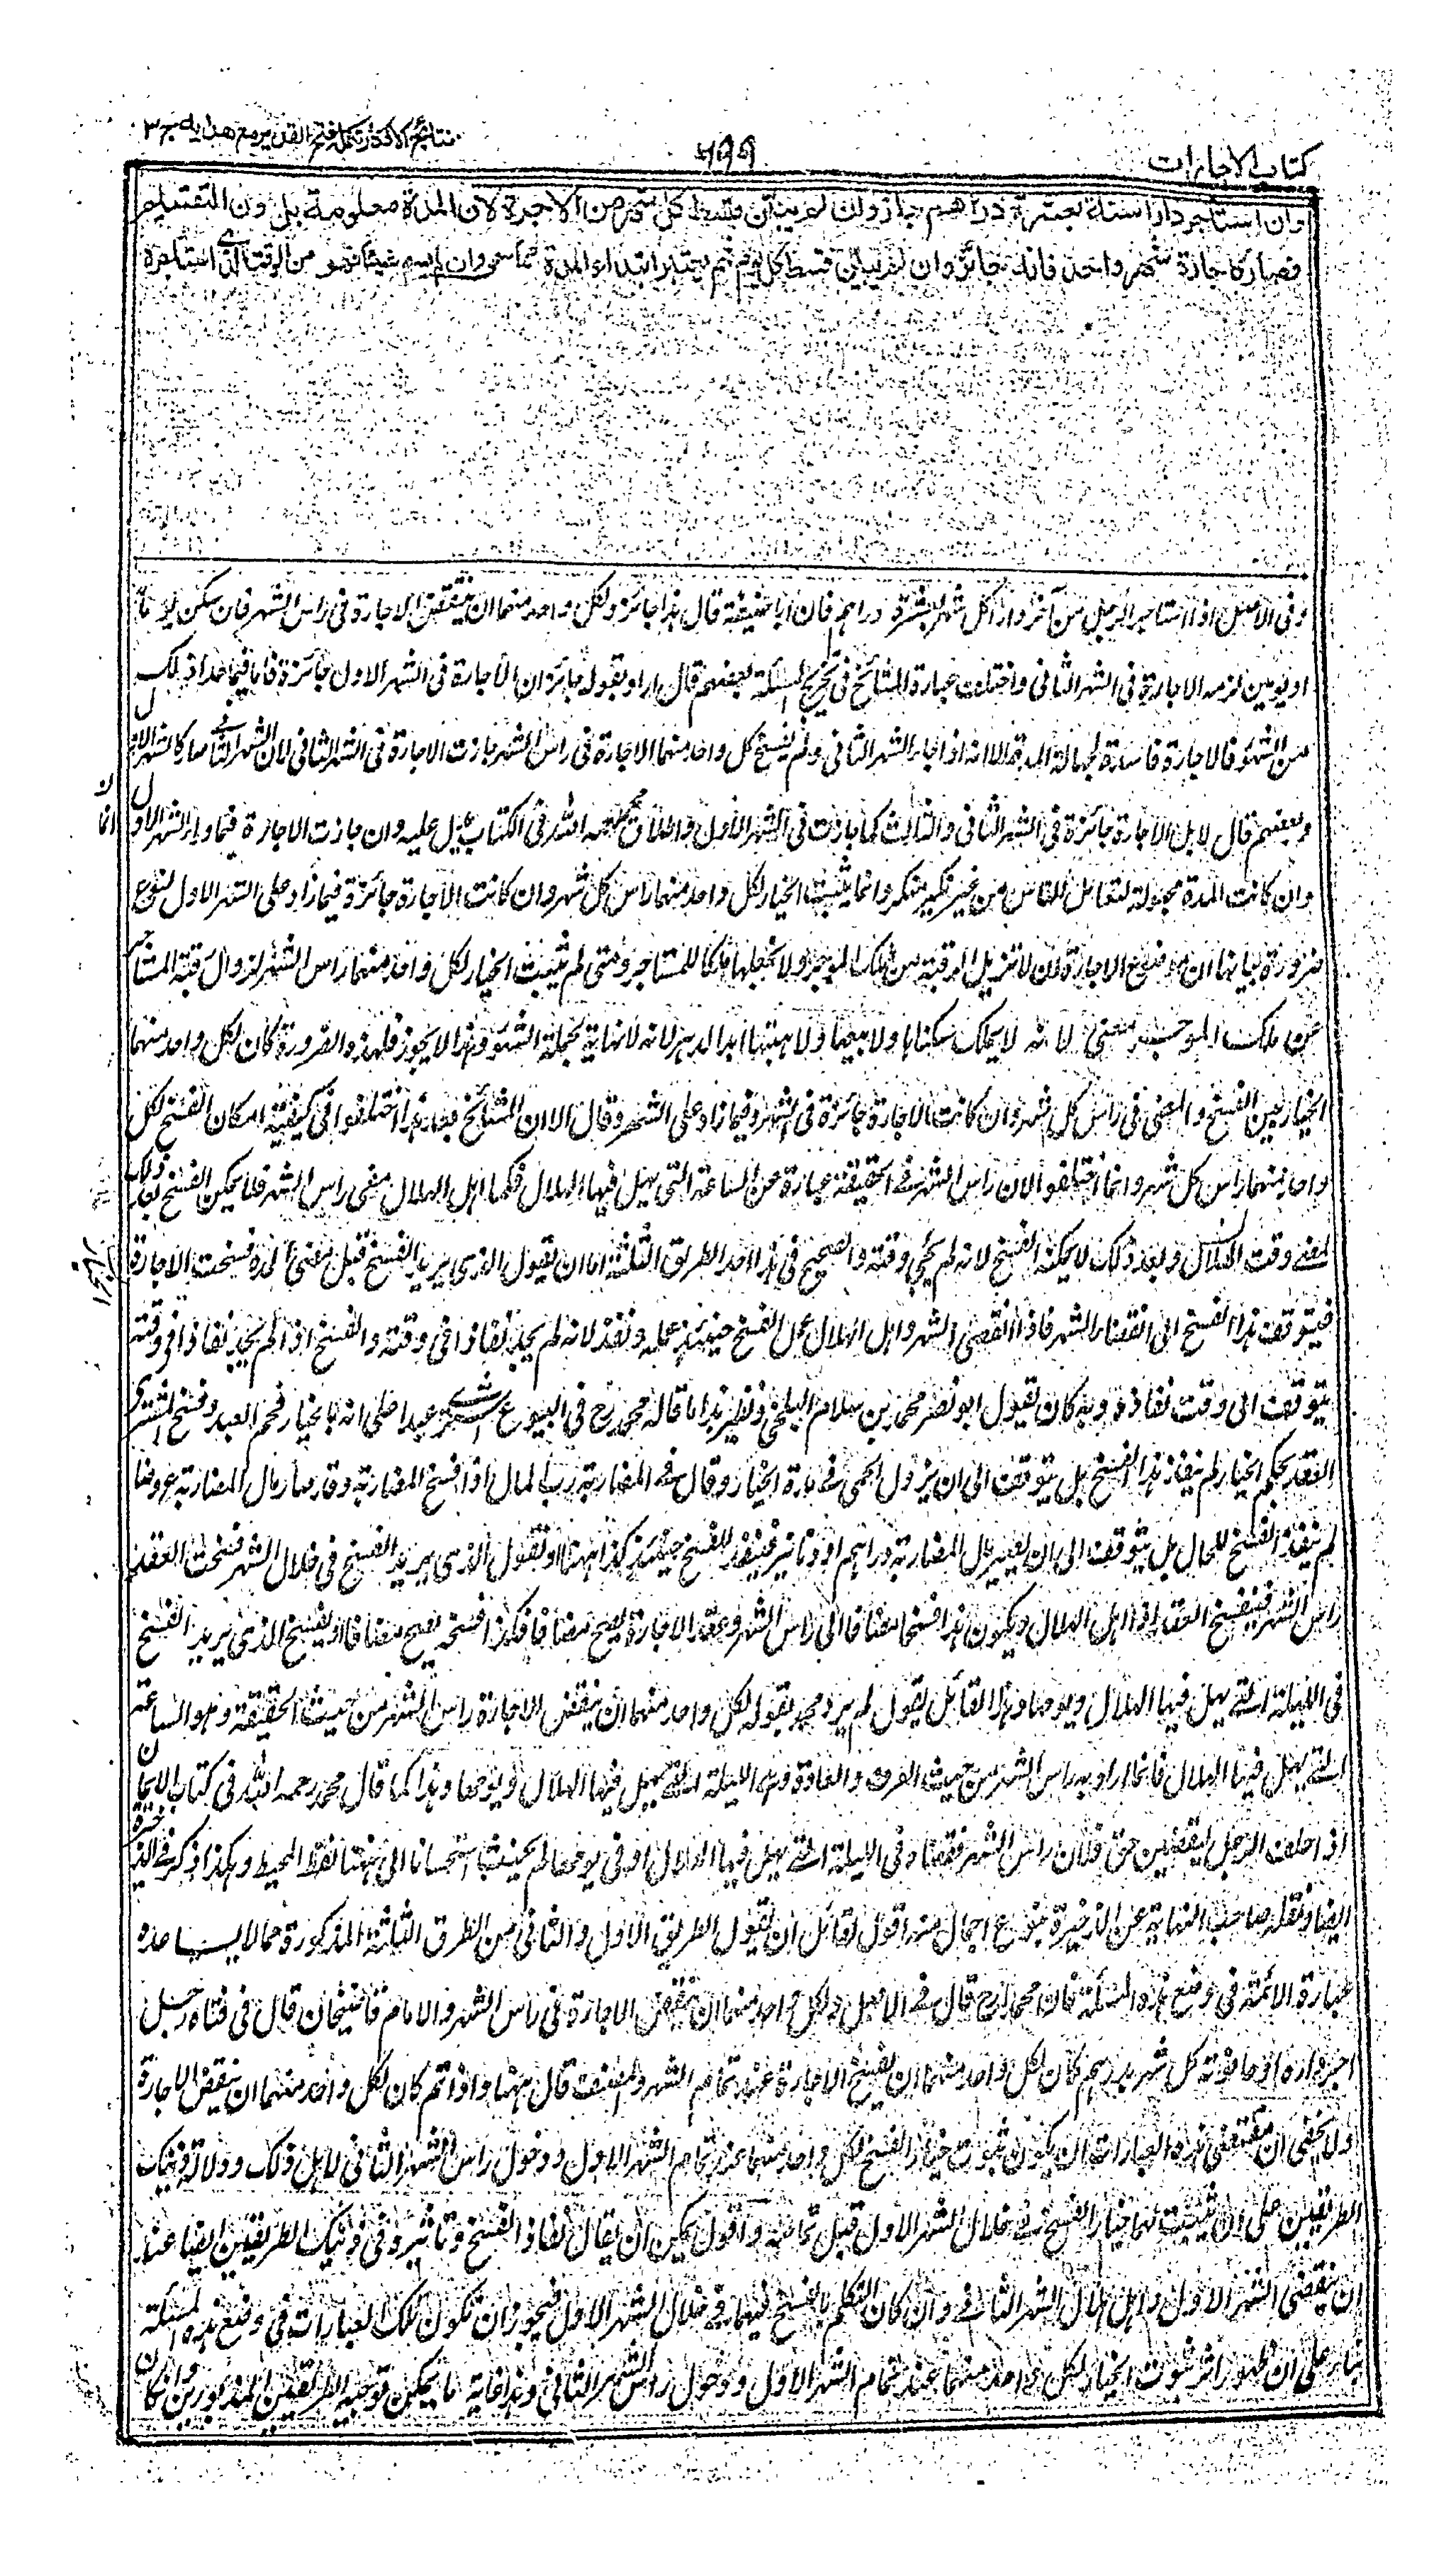 كتاب الاجارات
نتائج الافكار تكملة فتح القدير مع هدايه ج ٣
وان استاجر دارا سنة بعشرة دراهم جاز وان لم يبين قسط كل شهر من الاجرة لان المدة معلومة بدون التقسيم
فصار كاجارة شهر واحد فانه جائز وان لم يبين قسط كل يوم ثم يعتبر ابتداء المدة مما سمى وان لم يسم شيئا فهو من الوقت الذي استاجره
وفى الاصل اذا استاجر الرجل من آخر دارا كل شهر بعشرة دراهم فان ابا حنيفة قال هذا جائز ولكل واحد منهما ان ينقض الاجارة فى راس الشهر فان سكن يوما
او يومين لزمه الاجارة فى الشهر الثانى واختلفت عبارة المشائخ فى تخريج المسئلة بعضهم قال اراد بقوله جائز ان الاجارة فى الشهر الاول جائزة فاما فيما عدا ذلك
من الشهور فالاجارة فاسدة لجهالة المدة الا انه اذا جاء الشهر الثانى ولم يفسخ كل واحد منهما الاجارة فى راس الشهر جازت الاجارة فى الشهر الثانى لان الشهر الثانى صار كالشهر الاول
وبعضهم قال لا بل الاجارة جائزة فى الشهر الثانى والثالث كما جازت فى الشهر الاول واطلاق محمد رحمه الله فى الكتاب يدل عليه وان جازت الاجارة فيما وراء الشهر الاول
وان كانت المدة مجهولة لتعامل الناس من غير نكير منكر وانما يثبت الخيار لكل واحد منهما راس كل شهر وان كانت الاجارة جائزة فيما زاد على الشهر الاول لنوع
ضرورة بيانها ان موضوع الاجارة ان لا تزيل الرقبة من ملك الموجر ولا تجعلها ملكا للمستاجر ومتى لم يثبت الخيار لكل واحد منهما راس الشهر لزوال رقبة المستاجر
عن ملك الموجر معنى لانه لا يملك سكناها ولا بيعها ولا هبتها ابد الدهر لانه لا نهاية لجملة الشهور وهذا لا يجوز فلهذه الضرورة كان لكل واحد منهما
الخيار بين الفسخ والمضى فى راس كل شهر وان كانت الاجارة جائزة فى الشهر وفيما زاد على الشهر وقال الا ان المشائخ بعد هذا اختلفوا فى كيفية امكان الفسخ لكل
واحد منهما راس كل شهر وانما اختلفوا لان راس الشهر فى الحقيقة عبارة عن الساعة التى يهل فيها الهلال فكما اهل الهلال مضى راس الشهر فلا يمكن الفسخ بعد ذلك
لمضى وقت وبعد ذلك لا يمكنه الفسخ لانه لم يجئ وقته والصحيح فى هذا احد الطريق الثلثة اما ان يقول الذى يريد الفسخ قبل مضى المدة فسخت الاجارة
فيتوقف هذا الفسخ الى انقضاء الشهر فاذا انقضى الشهر واهل الهلال عمل الفسخ حينئذ عمله ونفذ لانه لم يجد نفاذا فى وقته والفسخ اذا لم يجد نفاذا فى وقته
يتوقف الى وقت نفاذه وبه كان يقول ابو نصر محمد بن سلام البلخى ونظير هذا ما قاله محمد رح فى البيوع اشترى عبدا على انه بالخيار فحم العبد وفسخ المشترى
العقد بحكم الخيار لم ينفذ هذا الفسخ بل يتوقف الى ان يزول الحمى فى مدة الخيار وقال فى المضاربة رب المال اذا فسخ المضاربة وقد صار مال المضاربة عروضا
لم ينفذ الفسخ للحال بل يتوقف الى ان يصير مال المضاربة دراهم او دنانير فينفذ الفسخ حينئذ كذا ههنا او يقول الذى يريد الفسخ فى خلال الشهر فسخت العقد
راس الشهر فينفسخ العقد اذا اهل الهلال ويكون هذا فسخا مضافا الى راس الشهر وعقد الاجارة يصح مضافا فكذا فسخه يصح مضافا او يفسخ الذى يريد الفسخ
فى الليلة التى يهل فيها الهلال ويومها وهذا القائل يقول لم يرد محمد بقوله لكل واحد منهما ان ينقض الاجارة راس الشهر من حيث الحقيقة وهو الساعة
التى يهل فيها الهلال فانما اراد به راس الشهر من حيث العرف والعادة وهى الليلة التى يهل فيها الهلال ويومها وهذا كما قال محمد رحمه الله فى كتاب الايمان
اذا حلف الرجل ليقضين حق فلان راس الشهر فقضاه فى الليلة التى يهل فيها الهلال او فى يومها لم يحنث استحسانا الى ههنا لفظ المحيط وهكذا ذكر فى الذخيرة
ايضا ونقله صاحب النهاية عن الذخيرة بنوع اجمال منه اقول لقائل ان يقول الطريق الاول والثانى من الطرق الثلثة المذكورة مما لا يساعده
عبارة الائمة فى وضع هذه المسئلة فان محمدا رح قال فى الاصل ولكل واحد منهما ان ينقض الاجارة فى راس الشهر والامام قاضيخان قال فى فتاواه رجل
اجر داره او حانوته كل شهر بدرهم كان لكل واحد منهما ان يفسخ الاجارة عند تمام الشهر والمصنف قال ههنا واذا تم كان لكل واحد منهما ان ينقض الاجارة
ولا يخفى ان مقتضى هذه العبارات ان يكون ثبوت خيار الفسخ لكل واحد منهما عند تمام الشهر الاول ودخول راس الشهر الثانى لا قبل ذلك ودلالة ذينك
الطريقين على ان يثبت لهما خيار الفسخ فى خلال الشهر الاول قبل تمامه واقول يمكن ان يقال نفاذ الفسخ وتاثيره فى ذينك الطريقين ايضا عند
ان ينقضى الشهر الاول واهل هلال الشهر الثانى وان كان التكلم بالفسخ فيهما فى خلال الشهر الاول فيجوز ان تكون تلك العبارات فى وضع هذه المسئلة
بناء على ان ظهور اثر ثبوت الخيار لكل واحد منهما عند تمام الشهر الاول ودخول راس الشهر الثانى وهذا غاية ما يمكن توجيه الطريقين المذكورين وان كان